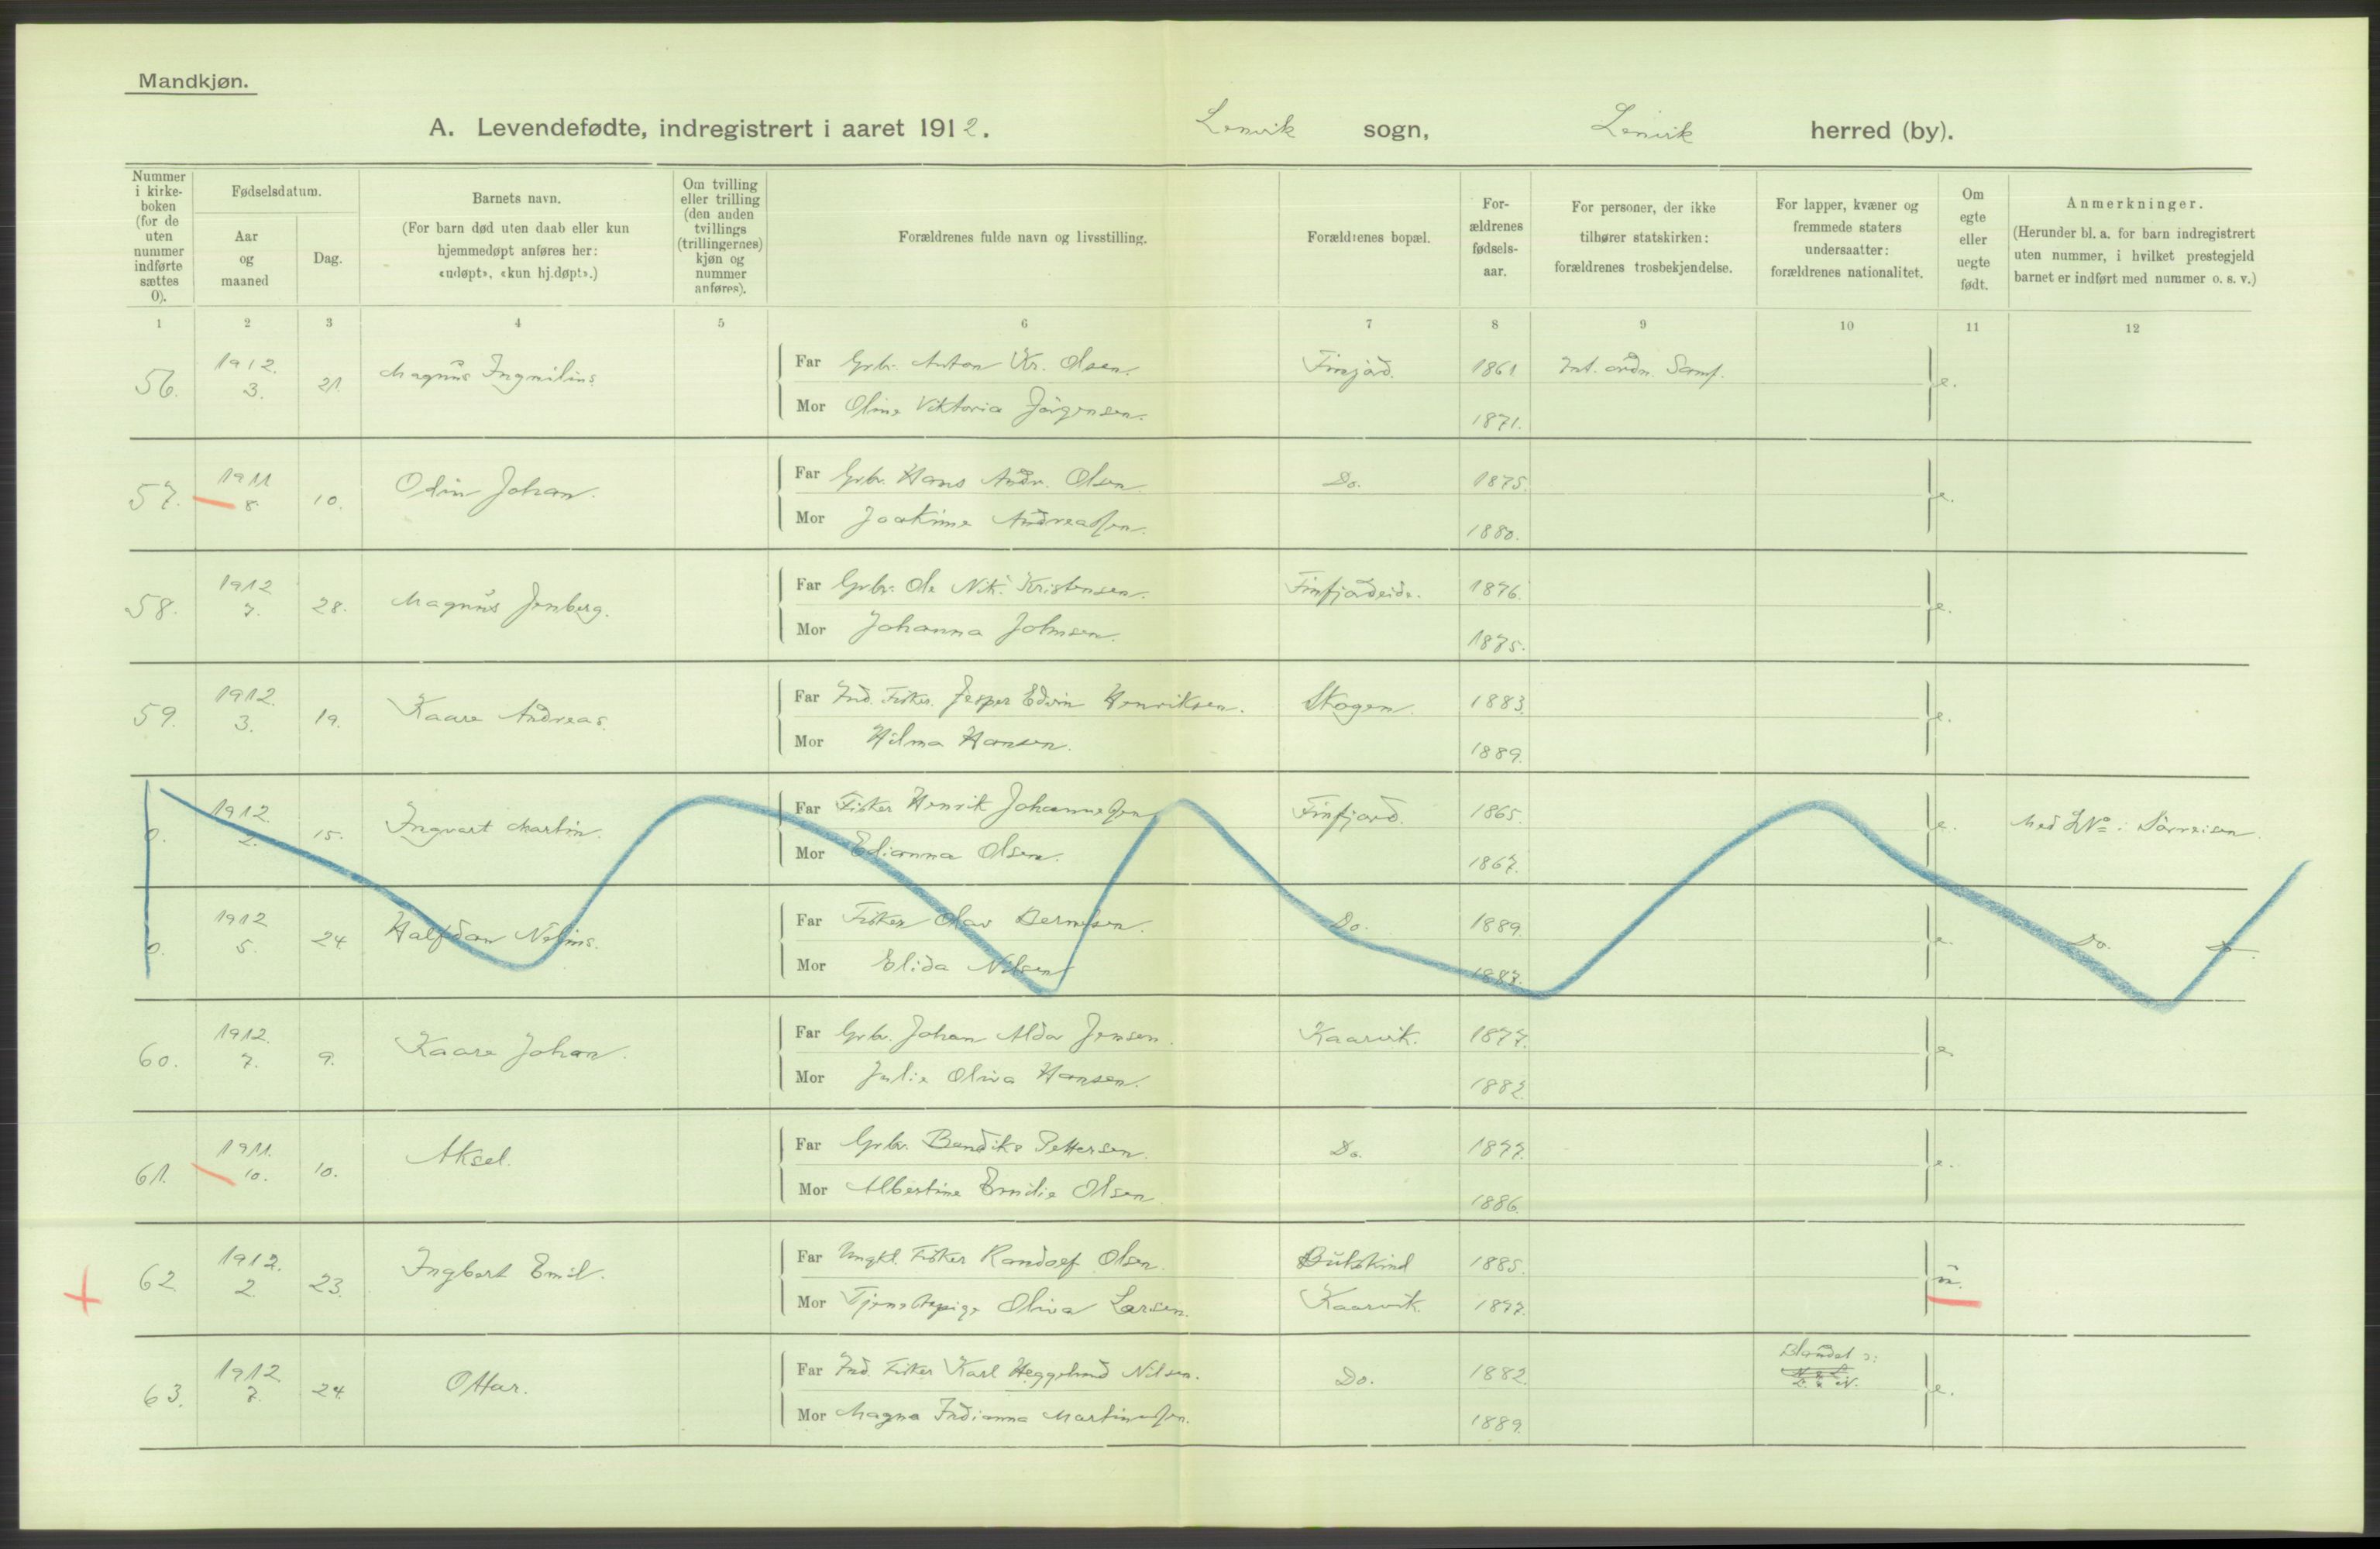 Mandkjøn.
A. Levendefødte, indregistrert i aaret 1912. Lenvik sogn, Lenvik herred (by).
Nummer i kirke- boken (for de uten nummer indførte sættes 0).
Fødselsdatum.
Aar og maaned
Dag.
Barnets navn.
(For barn død uten daab eller kun hjemmedøpt anføres her: «udøpt», «kun hj.døpt».)
Om tvilling eller trilling (den anden tvillings (trillingernes) kjøn og nummer anføres).
Forældrenes fulde navn og livsstilling.
Forældrenes bopæl.
For- ældrenes fødsels- aar.
For personer, der ikke tilhører statskirken: forældrenes trosbekjendelse.
For lapper, kvæner og fremmede staters undersaatter: forældrenes nationalitet.
Om egte eller uegte født.
Anmerkninger.
(Herunder bl. a. for barn indregistrert uten nummer, i hvilket prestegjeld barnet er indført med nummer o. s. v.)
1 2 3 4 5 6 7 8 9 10 11 12
56. 1912. 3. 21. Magnus Ingmilius. Far Grbr. Anton Kr. Olsen. Finfjord. 1861 Int. ordn. Samf. e.
Mor Oline Viktoria Jörgensen. 1871.
57. 1911 8. 10. Odin Johan. Far Grbr. Hans Andr. Olsen. Do. 1875. e.
Mor Joakime Andreassen. 1880.
58. 1912 7. 28. Magnus Jenberg. Far Grbr. Ole Nik. Kristensen. Finfjordeide. 1876. e.
Mor Johanna Johnsen. 1875.
59. 1912. 3. 19. Kaare Andreas. Far Ind. Fisker. Jesper Edvin Henriksen. Skogen. 1883. e.
Mor Hilma Hansen. 1889.
0. 1912. 2. 15. Ingvart Martin. Far Fisker Henrik Johannessen Finfjord. 1865. e. Med No: Sörreisen.
Mor Edianna Olsen. 1867.
0. 1912 5. 24 Halfdan Nelius. Far Fisker Olav Berntsen. Do. 1889. e. Do. Do
Mor Elida Nilsen 1887.
60. 1912. 7. 9. Kaare Johan. Far Grbr. Johan Aldor Jensen. Kaarvik. 1877. e.
Mor Julie Oliva Hansen. 1882.
61. 1911. 10. 10. Aksel. Far Grbr. Bendiks Pettersen. Do. 1877. e.
Mor Albertine Emilie Olsen. 1886.
62. 1912. 2. 23. Ingbert Emil. Far Ungkl. Fisker Randolf Olsen. Bukskind 1885. u.
Mor Tjenestepige Oliva Larsen. Kaarvik. 1877.
63. 1912 7. 24. Ottar. Far Ind. Fisker Karl Heggelund Nilsen. Do. 1882. Blandet e.
Mor Magna Indianna Martinussen. 1889.